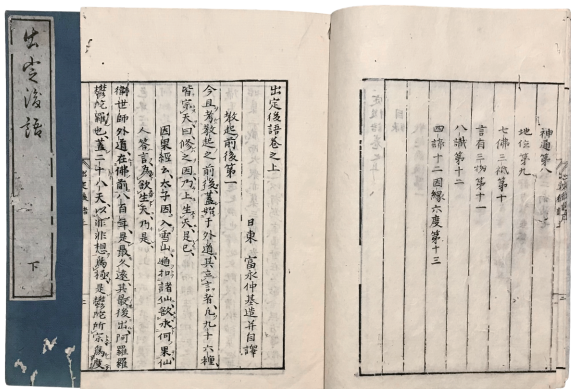 出定後語
下
神通第八
地位第九
七佛三祇第十
言有三物第十一
八識第十二
四諦十二因緣六度第十三
出定後語卷之上
教起前後第一
日東 富永仲基造并自譯
今且考教起之前後蓋始于外道其立言者凡九十六種
皆宗天曰修之因乃上生天是已
因果經云太子因入雪山遍扣諸仙欲求何果仙
人答言為欲生天乃是
衛世師外道在佛前八百年是最久遠其最後出阿羅羅
鬱陀羅也蓋二十八天以非非想為極是鬱陀所宗為度